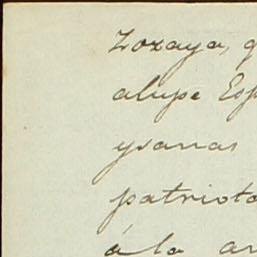 Zozaya, q
alupe Esp
ysanas
patrioto
á la an